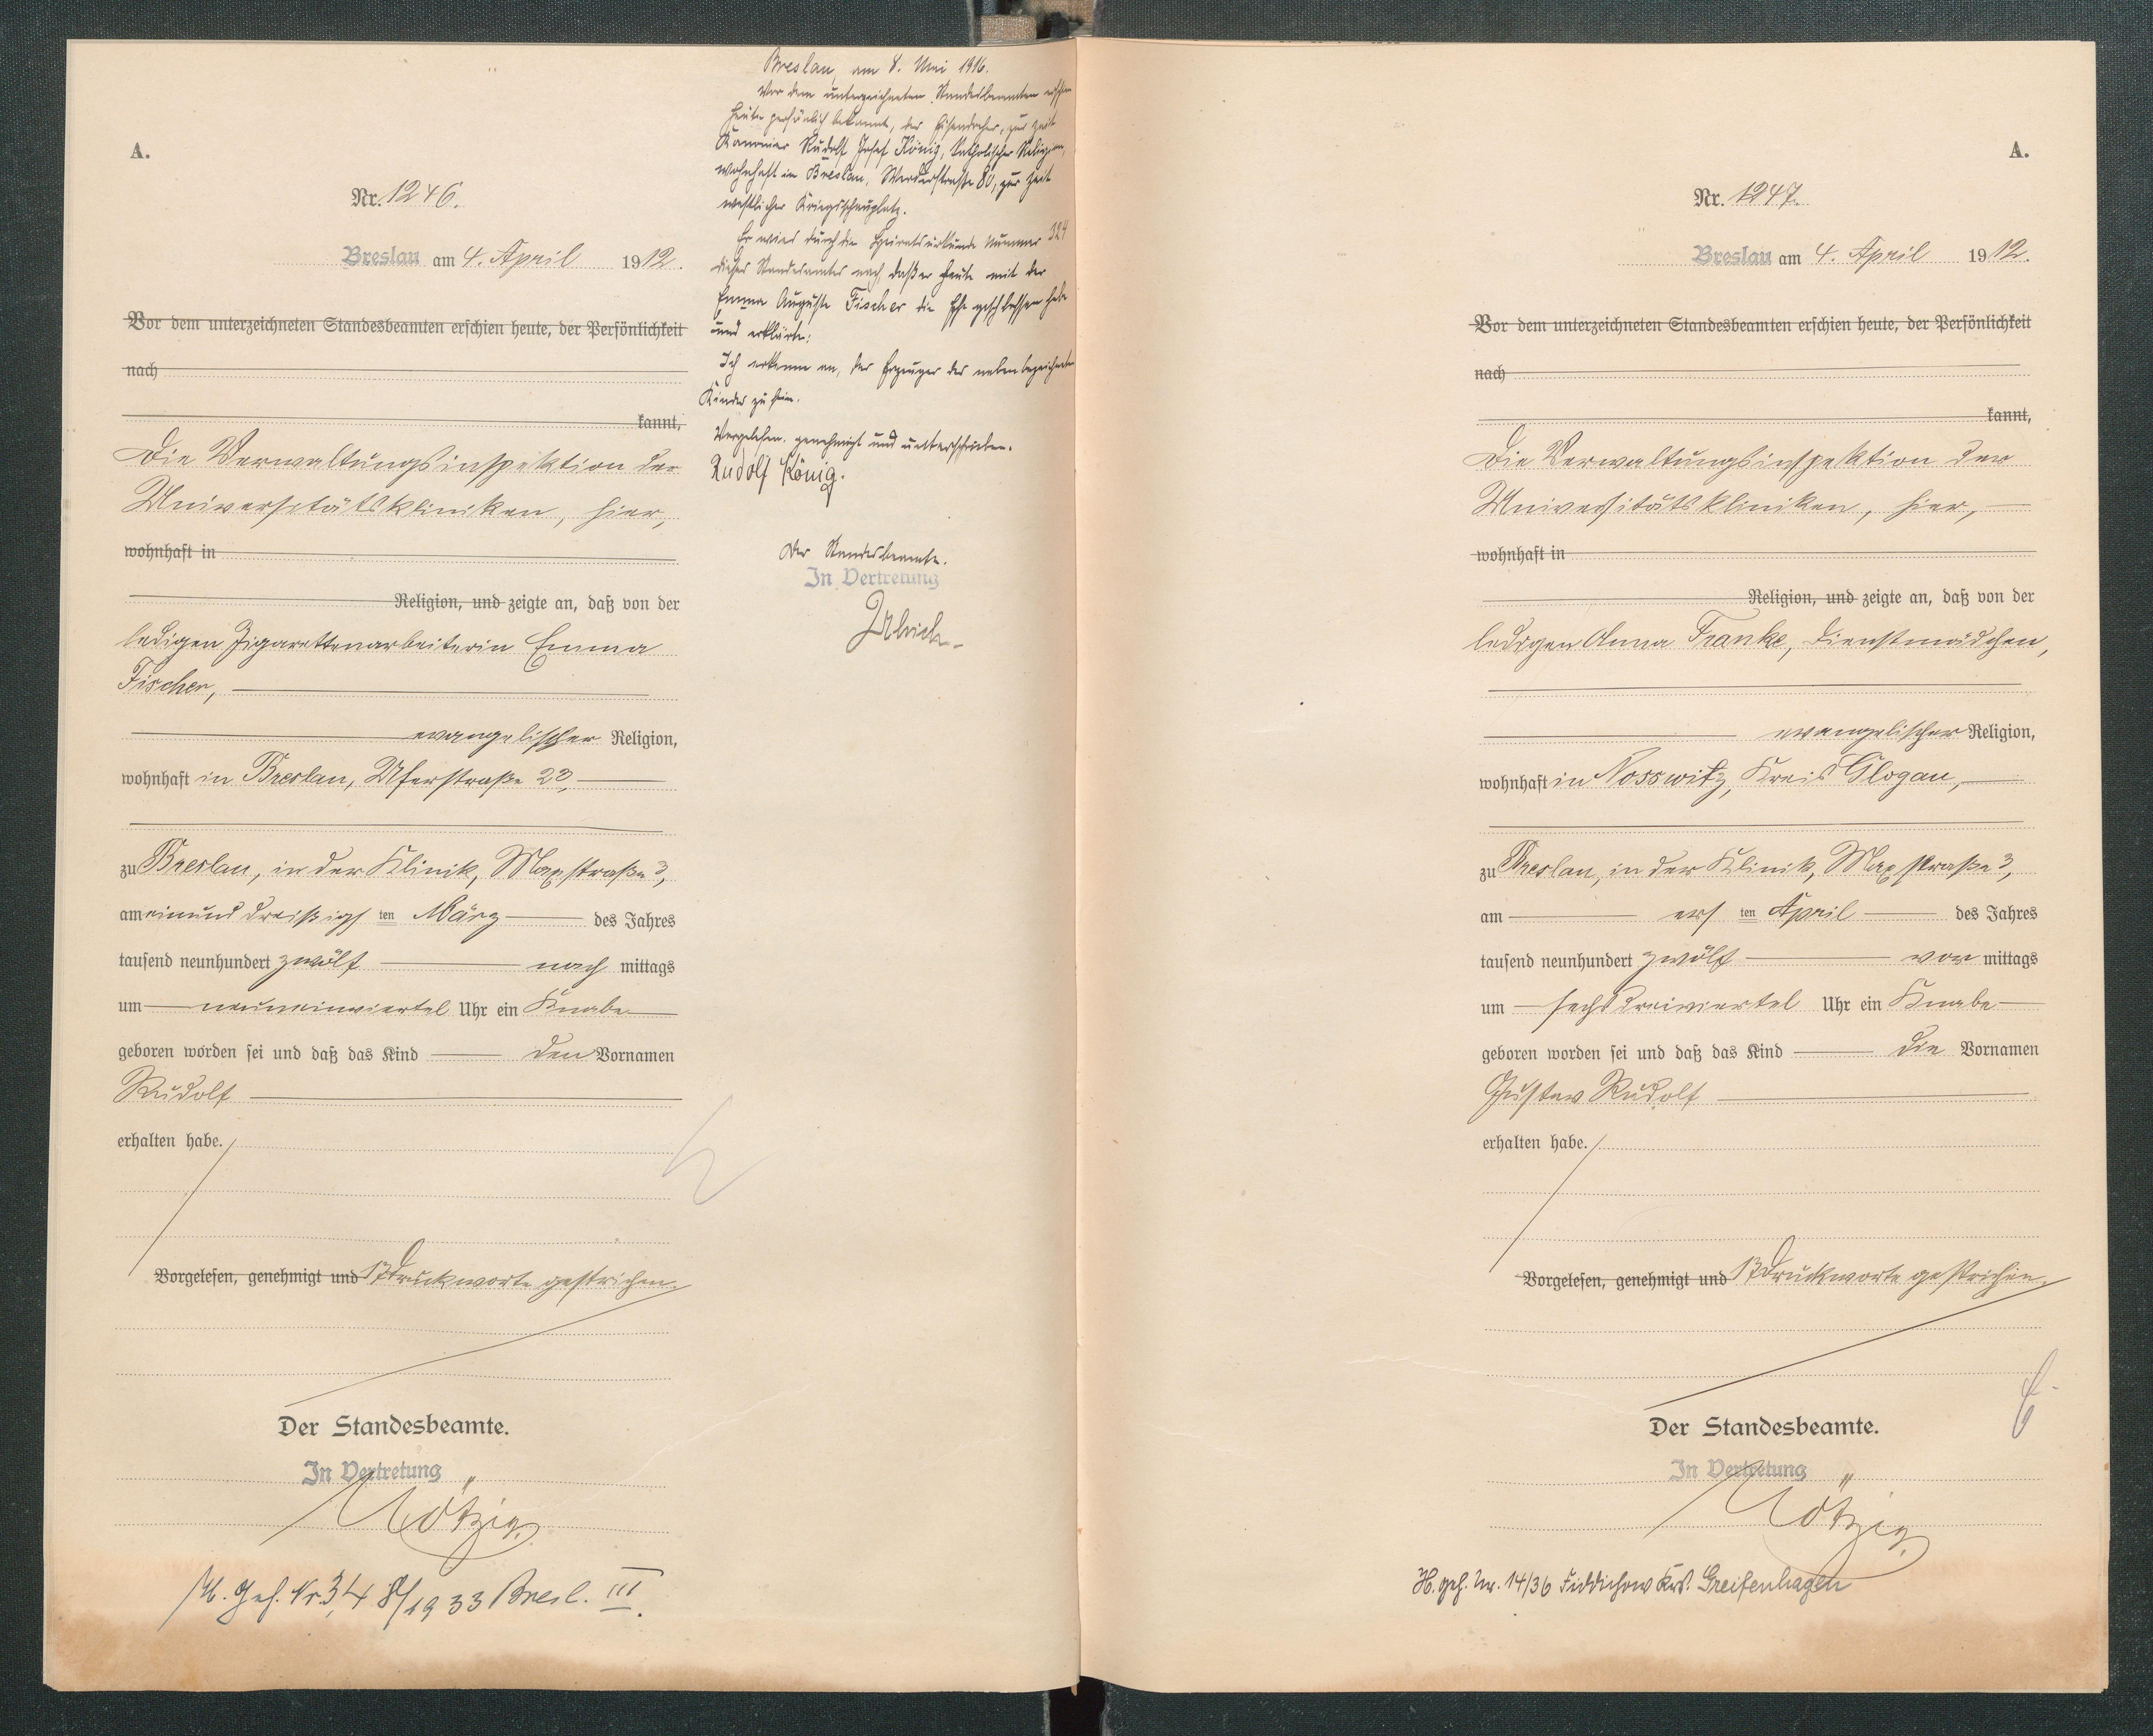 A.
Nr. 1246.
Breslau am 4. April 1912.
Vor dem unterzeichneten Standesbeamten erschien heute, der Persönlichkeit
nach
kannt,
Die Verwaltungsinspektion der
Universitätskliniken, hier,
wohnhaft in
Religion, und zeigte an, daß von der
ledigen Zigarettenarbeiterin Emma
Fischer,
evangelischer Religion,
wohnhaft in Breslau, Uferstraße 23,
zu Breslau, in der Klinik, Maxstraße 3,
am einunddreißigsten März des Jahres
tausend neunhundert zwölf nachmittags
um neuneinviertel Uhr ein Knabe
geboren worden sei und daß das Kind den Vornamen
Rudolf
erhalten habe.
Vorgelesen, genehmigt und 17 Druckworte gestrichen.
Der Standesbeamte.
In Vertretung
Nötzig.
H. Geh. Nr. 348/1933 Bresl. III.
Breslau, am 8. Mai 1916.
Vor dem unterzeichneten Standesbeamten erschien
heute persönlich bekannt, der Eisendreher, zur Zeit
Kanonier Rudolf Josef König, katholischer Religion,
wohnhaft in Breslau, Werderstraße 80, zur Zeit
westlicher Kriegsschauplatz.
Er wies durch die Heiratsurkunde Nummer 324
dieses Standesamtes nach, daß er heute mit der
Emma Auguste Fischer die Ehe geschlossen habe
und erklärte:
Ich erkenne an, der Erzeuger des nebenbezeichneten
Kindes zu sein.
Vorgelesen, genehmigt und unterschrieben.
Rudolf König.
Der Standesbeamte.
In Vertretung
A.
Nr. 1247.
Breslau am 4. April 1912.
Vor dem unterzeichneten Standesbeamten erschien heute, der Persönlichkeit
nach
kannt,
Die Verwaltungsinspektion der
Universitätskliniken, hier,
wohnhaft in
Religion, und zeigte an, daß von der
ledigen Anna Franke, Dienstmädchen,
evangelischer Religion,
wohnhaft in Nosswitz, Kreis Glogau,
zu Breslau, in der Klinik, Maxstraße 3,
am ersten April des Jahres
tausend neunhundert zwölf vormittags
um sechsdreiviertel Uhr ein Knabe
geboren worden sei und daß das Kind die Vornamen
Gustav Rudolf
erhalten habe.
Vorgelesen, genehmigt und 17 Druckworte gestrichen.
Der Standesbeamte.
In Vertretung
Nötzig.
H. geh. Nr. 14/36 Fiddichow Krs. Greifenhagen